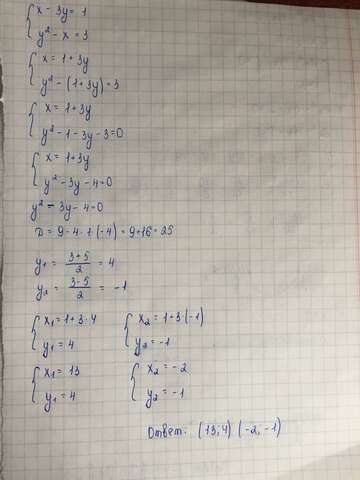 x - 3y = 1
y² - x = 3
x = 1 + 3y
y² - (1 + 3y) = 3
x = 1 + 3y
y² - 1 - 3y - 3 = 0
x = 1 + 3y
y² - 3y - 4 = 0
y² - 3y - 4 = 0
D = 9 - 4 · 1 · (-4) = 9 + 16 = 25
y₁ = (3 + 5)/2 = 4
y₂ = (3 - 5)/2 = -1
x₁ = 1 + 3 · 4 x₂ = 1 + 3 · (-1)
y₁ = 4 y₂ = -1
x₁ = 13 x₂ = -2
y₁ = 4 y₂ = -1
Ответ: (13; 4) (-2, -1)